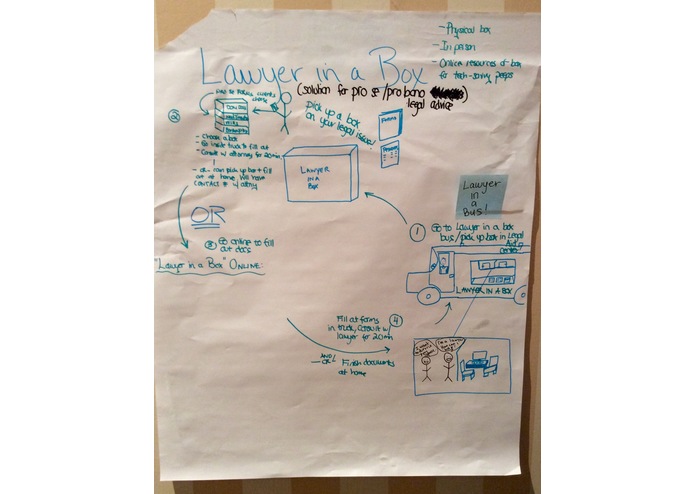 - Physical box
- In person
- Online resources of box
for tech-savvy peeps
Lawyer in a Box
(solution for pro se/pro bono
legal advice)
pick up a box
on your legal issue!
Forms
②
- Choose a box
- Go inside truck to fill out
- Consult w/ attorney for 20 min
- or... can pick up box + fill
out at home, will have
CONTACT # w/ attny
LAWYER
IN A
BOX
Lawyer
in
a
Bus!
OR
① Go to Lawyer in a box
bus/pick up box in Legal
Aid
③ Go online to fill
out docs
"Lawyer in a Box" ONLINE:
LAWYER IN A BOX
④
Fill out forms
in truck, consult w/
lawyer for 20 min
AND/
OR/
Finish documents
at home